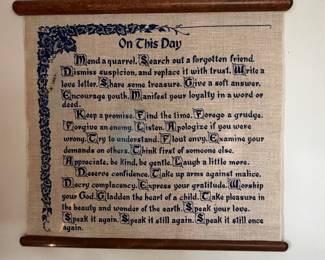 On This Day
Mend a quarrel. Search out a forgotten friend.
Dismiss suspicion, and replace it with trust. Write a
love letter. Share some treasure. Give a soft answer.
Encourage youth. Manifest your loyalty in a word or
deed.
Keep a promise. Find the time. Forego a grudge.
Forgive an enemy. Listen. Apologize if you were
wrong. Try to understand. Flout envy. Examine your
demands on others. Think first of someone else.
Appreciate, be kind, be gentle. Laugh a little more.
Deserve confidence. Take up arms against malice.
Decry complacency. Express your gratitude. Worship
your God. Gladden the heart of a child. Take pleasure in
the beauty and wonder of the earth. Speak your love.
Speak it again. Speak it still again. Speak it still once
again.